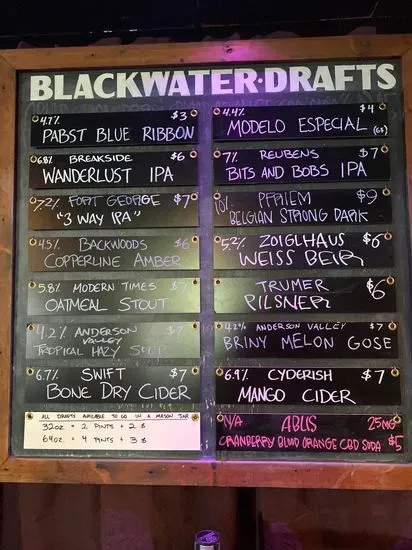 BLACKWATER·DRAFTS
4.7% $3
PABST BLUE RIBBON
6.8% BREAKSIDE $6
WANDERLUST IPA
7.2% FORT GEORGE $7
"3 WAY IPA"
4.5% BACKWOODS $6
COPPERLINE AMBER
5.8% MODERN TIMES $7
OATMEAL STOUT
4.2% ANDERSON VALLEY $7
TROPICAL HAZY SOUR
6.7% SWIFT $7
BONE DRY CIDER
ALL DRAFTS AVAILABLE TO GO IN A MASON JAR
32oz = 2 PINTS + 2 $
64oz = 4 PINTS + 3 $
4.4% $4
MODELO ESPECIAL
7% REUBENS $7
BITS AND BOBS IPA
10% PFRIEM $9
BELGIAN STRONG DARK
5.2% ZOIGLHAUS $6
WEISS BEIR
TRUMER $6
PILSNER
4.2% ANDERSON VALLEY $7
BRINY MELON GOSE
6.9% CYDERISH $7
MANGO CIDER
N/A ABLIS 25MG
CRANBERRY BLOOD ORANGE CBD SODA $5